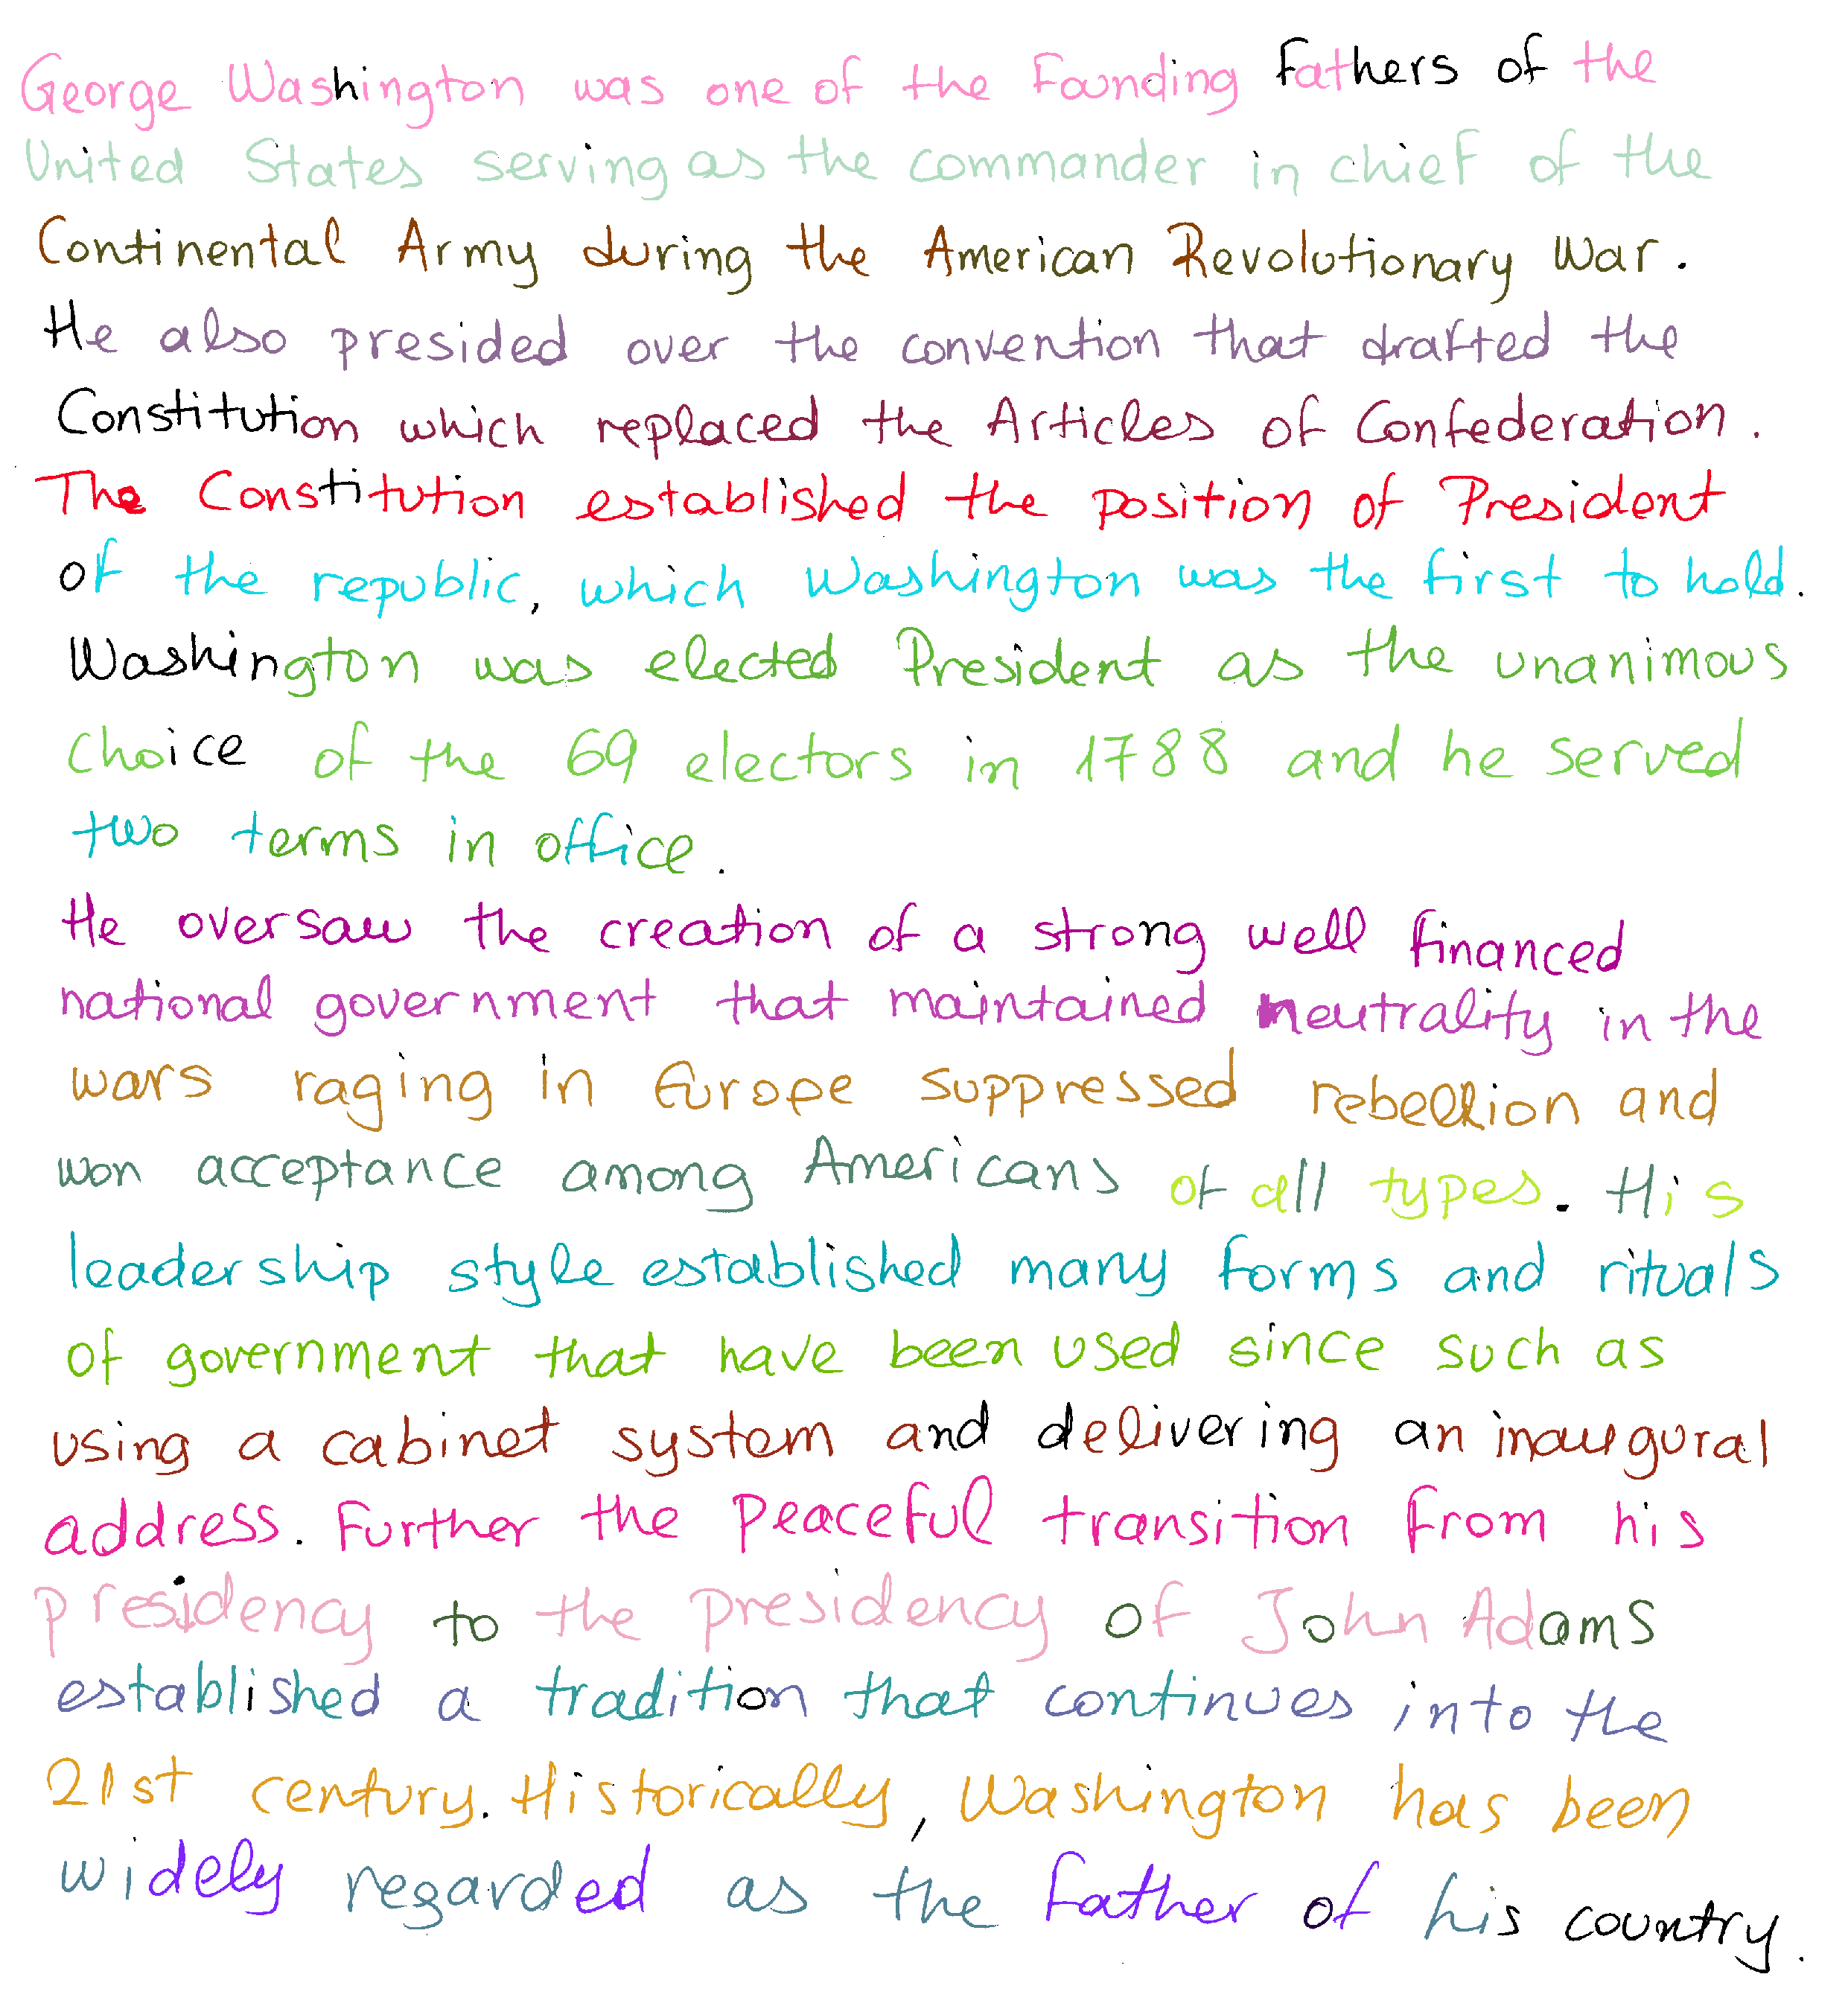 George Washington was one of the Founding Fathers of the
United States serving as the commander in chief of the
Continental Army during the American Revolutionary War.
He also presided over the convention that drafted the
Constitution which replaced the Articles of Confederation.
The Constitution established the position of President
of the republic, which Washington was the first to hold.
Washington was elected President as the unanimous
choice of the 69 electors in 1788 and he served
two terms in office.
He oversaw the creation of a strong well financed
national government that maintained neutrality in the
wars raging in Europe suppressed rebellion and
won acceptance among Americans of all types. His
leadership style established many forms and rituals
of government that have been used since such as
using a cabinet system and delivering an inaugural
address. Further the peaceful transition from his
presidency to the presidency of John Adams
established a tradition that continues into the
21st century. Historically, Washington has been
widely regarded as the father of his country.